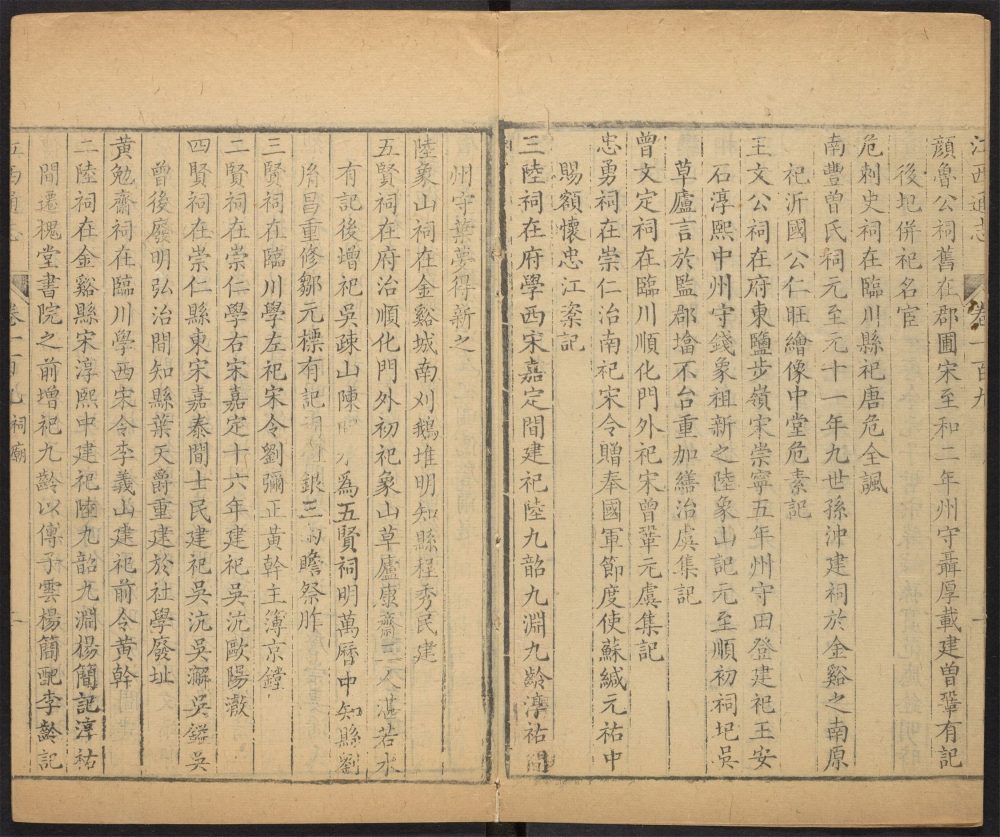 江西通志 卷一百九
顏魯公祠舊在郡圃宋至和二年州守聶厚載建曽鞏有記
後圯併祀名宦
危刺史祠在臨川縣祀唐危全諷
南豐曽氏祠元至元十一年九世孫沖建祠於金谿之南原
祀沂國公仁旺繪像中堂危素記
王文公祠在府東鹽步嶺宋崇寧五年州守田登建祀王安
石淳熙中州守錢象祖新之陸象山記元至順初祠圮吳
草廬言於監郡塔不台重加繕治虞集記
曾文定祠在臨川順化門外祀宋曾鞏元虞集記
忠勇祠在崇仁治南祀宋令贈奉國軍節度使蘇緘元祐中
賜額懷忠江楶記
三陸祠在府學西宋嘉定間建祀陸九韶九淵九齡淳祐間
州守葉夢得新之
陸象山祠在金谿城南刈鵝堆明知縣程秀民建
五賢祠在府治順化門外初祀象山草廬康齋三人湛若水
有記後增祀吳疎山陳明水為五賢祠明萬曆中知縣劉
胤昌重修鄒元標有記 銀三兩瞻祭胙
三賢祠在臨川學左祀宋令劉彌正黃幹主簿京鏜
二賢祠在崇仁學右宋嘉定十六年建祀吳沆歐陽澈
四賢祠在崇仁縣東宋嘉泰間士民建祀吳沆吳澥吳鎰吳
曾後廢明弘治間知縣葉天爵重建於社學廢址
黃勉齋祠在臨川學西宋令李義山建祀前令黃幹
二陸祠在金谿縣宋淳熙中建祀陸九韶九淵楊簡記淳祐
間遷槐堂書院之前增祀九齡以傅子雲楊簡配李齡記
江西通志 卷一百九 祠廟